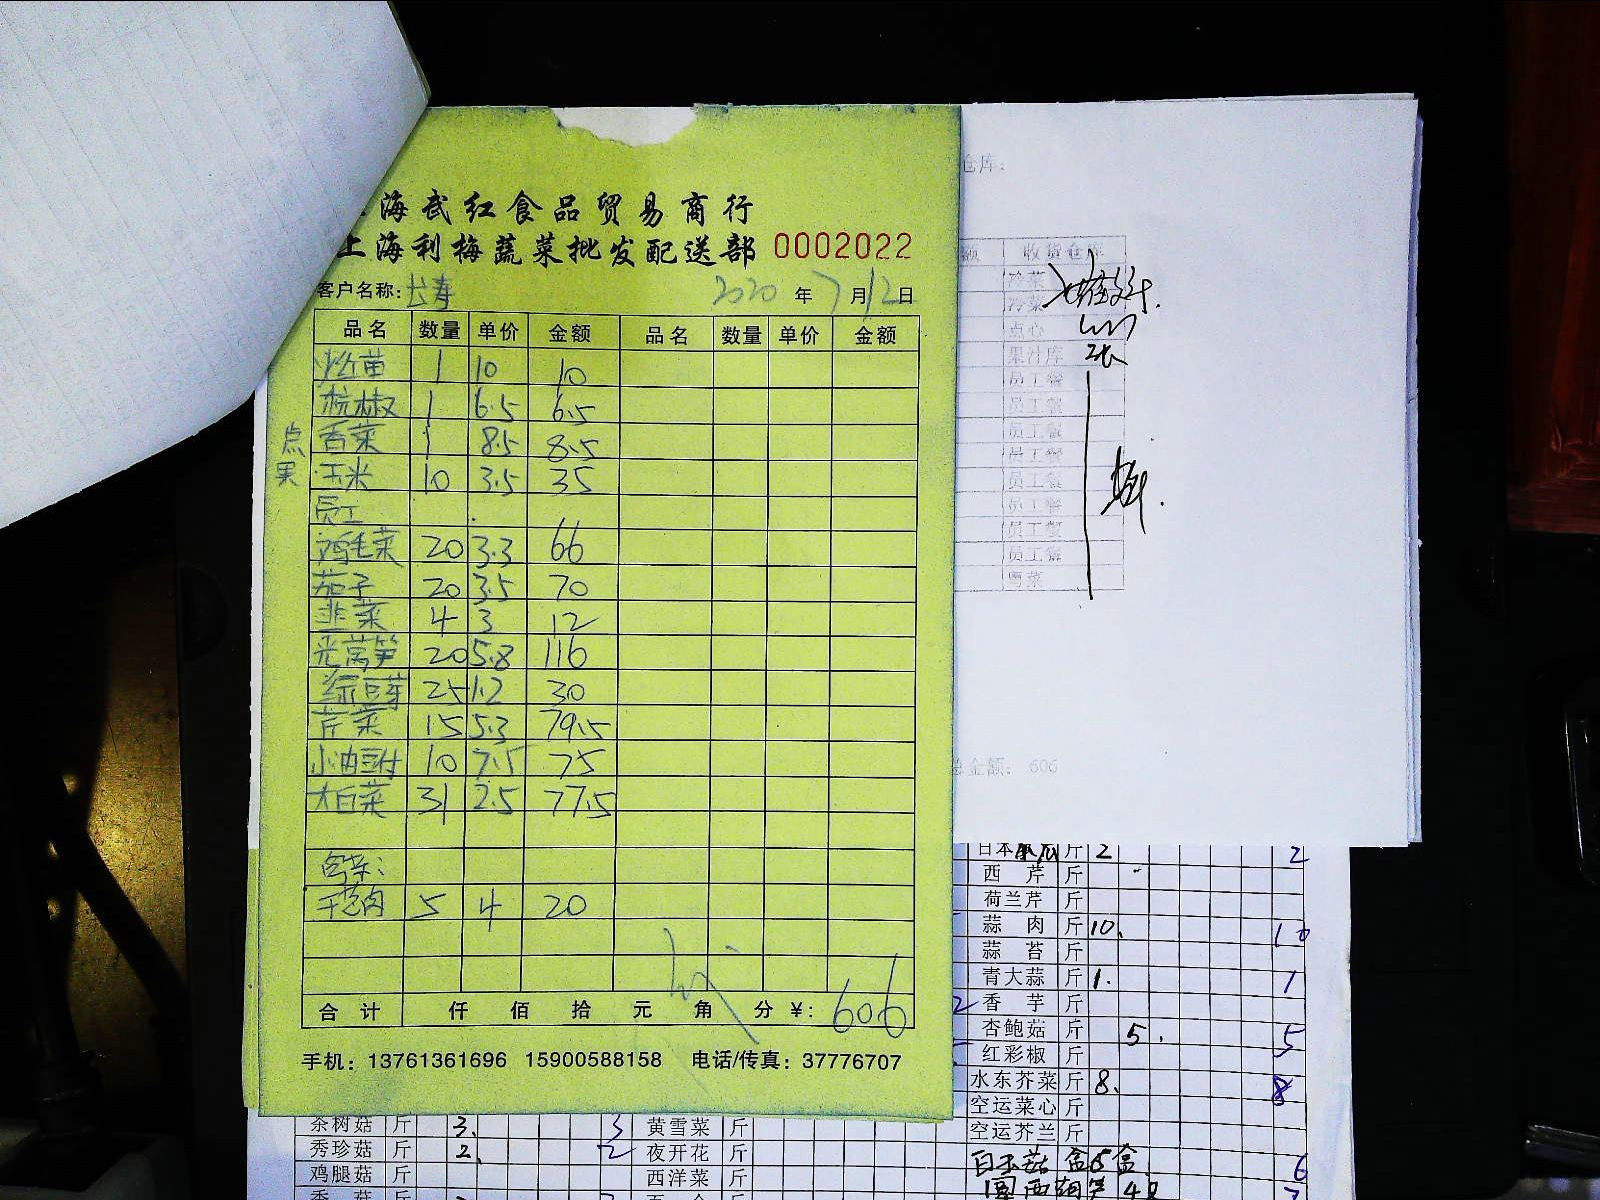 海武红食品贸易商行
上海利梅蔬菜批发配送部 0002022
客户名称: 长寿 2020 年 7 月 12 日
品名 数量 单价 金额 品名 数量 单价 金额
苗 1 10 10
杭椒 1 6.5 6.5
点 香菜 1 8.5 8.5
果 玉米 10 3.5 35
员工
鸡毛菜 20 3.3 66
茄子 20 3.5 70
韭菜 4 3 12
光莴笋 20 5.8 116
绿豆芽 25 1.2 30
芹菜 15 5.3 79.5
小内豆付 10 7.5 75
大白菜 31 2.5 77.5
5 4 20
合计 仟 佰 拾 元 角 分 ¥: 606
手机: 13761361696 15900588158 电话/传真: 37776707
仓库:
额 收货仓库
冷菜
冷菜
点心
果汁库 张
员工餐
员工餐
员工餐
员工餐
员工餐
员工餐
员工餐
员工餐
粤菜
总金额: 606
日本 斤 2 2
西芹 斤
荷兰芹 斤
蒜肉 斤 10. 10
蒜苔 斤
青大蒜 斤 1. 1
香芋 斤
杏鲍菇 斤 5. 5
红彩椒 斤
水东芥菜 斤 8. 8
空运菜心 斤
空运芥兰 斤
白玉菇 盒 6盒 6
茶树菇 斤 3. 3 黄雪菜 斤
秀珍菇 斤 2. 2 夜开花 斤
鸡腿菇 斤 西洋菜 斤